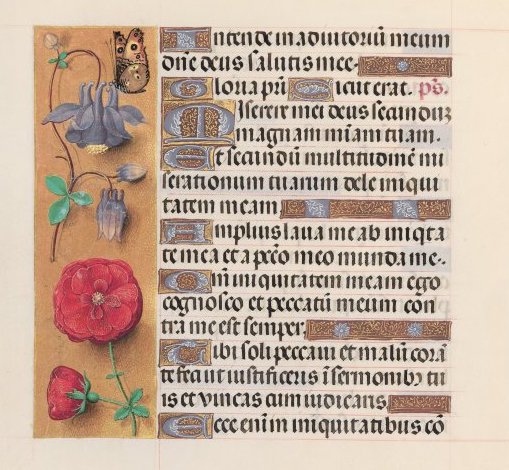 Intende in adiutoriu meum
dn̄e deus salutis mee.
Gloria pri Sicut erat. ps̄.
Miserere mei deus secunduz
magnam mīam tuam.
Et secundū multitudinē mi
serationum tuarum dele iniqui
tatem meam
Amplius laua me ab iniq̄ta
te mea et a pcc̄o meo munda me.
Qm̄ iniquitatem meam ego
cognosco et peccatū meum con
tra me est semper.
Tibi soli peccaui et malū corā
te feci ut iustificeris ī sermonibꝰ tu
is et vincas cum iudicaris
Ecce enī in iniquitatibus cō